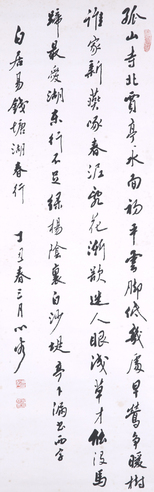 孤山寺北賈亭水面初平雲腳低幾處早鶯爭暖樹
誰家新燕啄春泥亂花漸欲迷人眼淺草才能沒馬
蹄最愛湖東行不足綠楊陰裏白沙堤亭下漏書西字
白居易錢塘湖春行 丁丑春三月